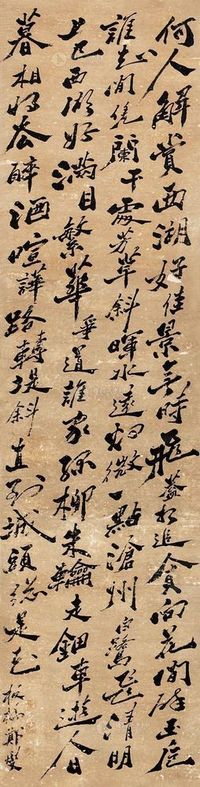 何人解賞西湖好佳景無時飛蓋相追貪向花間醉玉卮
誰知閒凭闌干處芳草斜暉水遠烟微一點滄州白鷺飛清明
上巳西湖好滿目繁華爭道誰家綠柳朱輪走鈿車遊人日
暮相將去醉酒喧譁路轉堤斜直到城頭總是花
板橋鄭燮